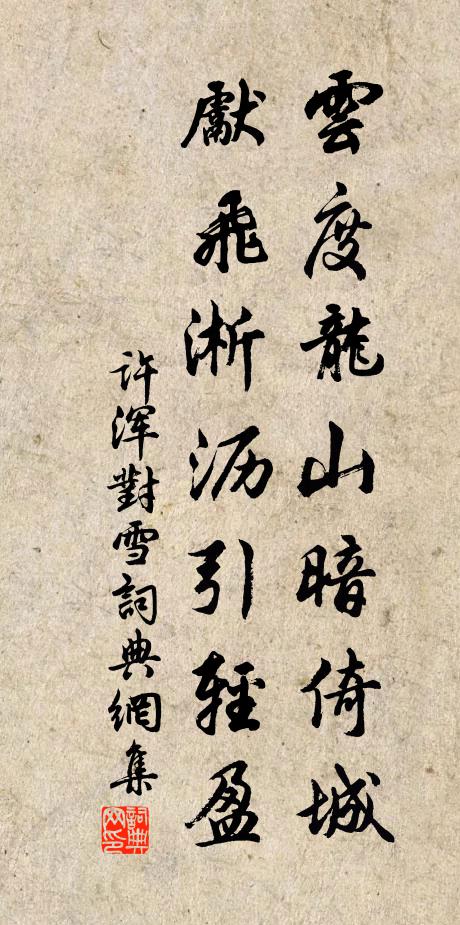 雲度龍山暗倚城
獻飛淅沥引輕盈
许渾對雪詞典網集
詞典网印